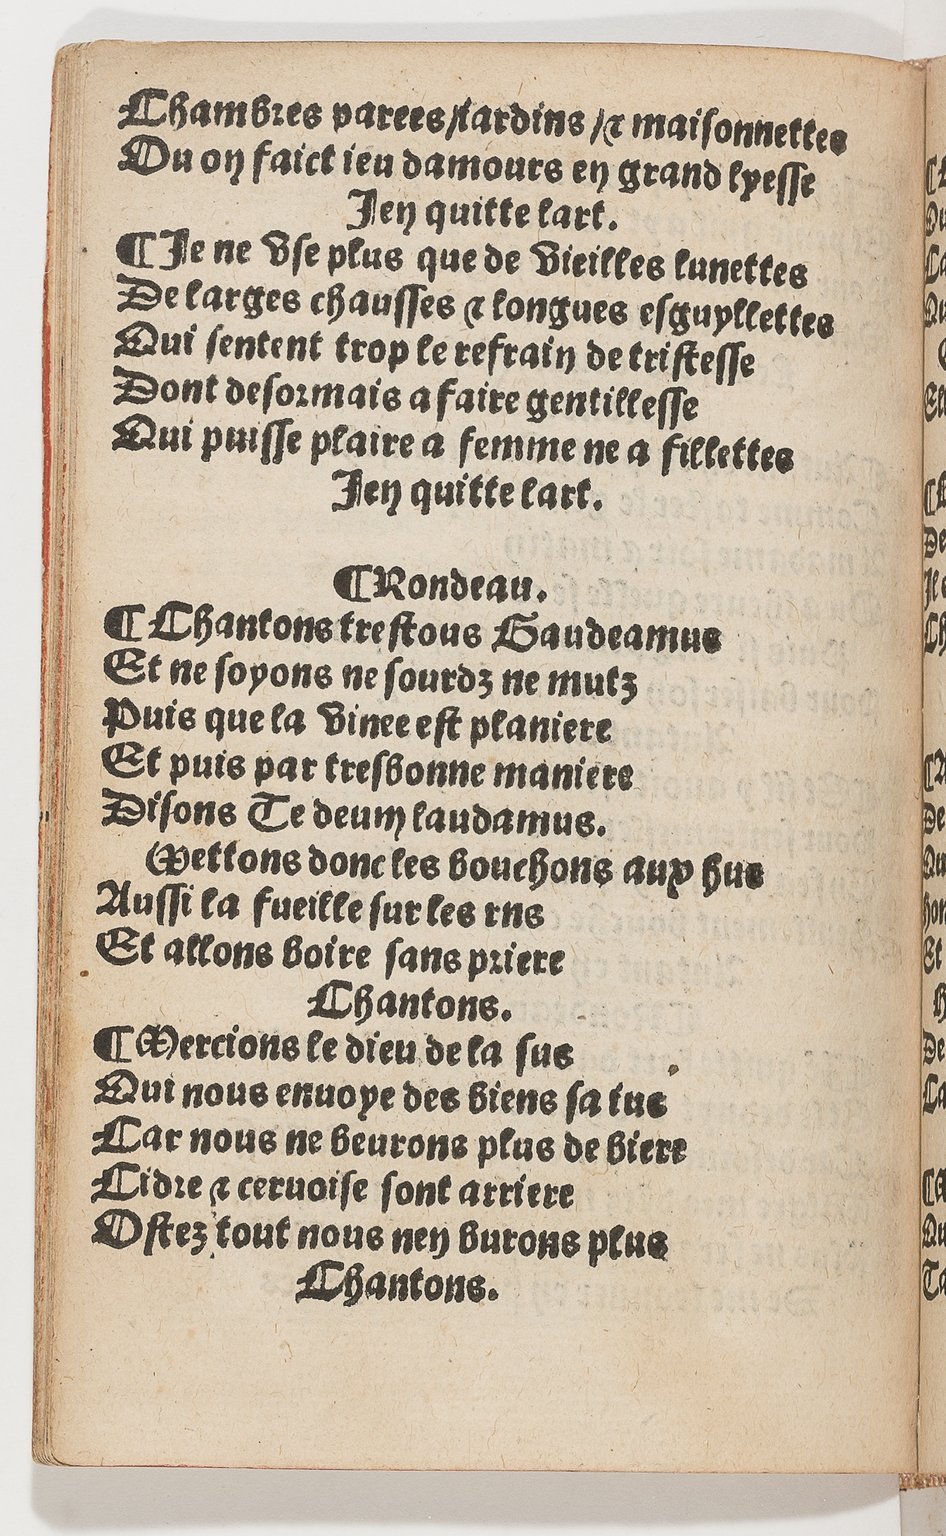 Chambres parees/iardins /⁊ maisonnettes
Ou on faict ieu damours en grand lyesse
Jen quitte lart.
¶Je ne vse plus que de vieilles lunettes
De larges chausses ⁊ longues esguyllettes
Qui sentent trop le refrain de tristesse
Dont desormais a faire gentillesse
Qui puisse plaire a femme ne a fillettes
Jen quitte lart.
¶Rondeau.
¶Chantons trestous Gaudeamus
Et ne soyons ne sourdz ne mutz
Puis que la vinee est planiere
Et puis par tresbonne maniere
Disons Te deum laudamus.
Mettons donc les bouchons aux hus
Aussi la fueille sur les rns
Et allons boire sans priere
Chantons.
¶Mercions le dieu de la sus
Qui nous enuoye des biens sa ius
Car nous ne beurons plus de biere
Cidre ⁊ ceruoise sont arriere
Ostez tout nous nen burons plus
Chantons.